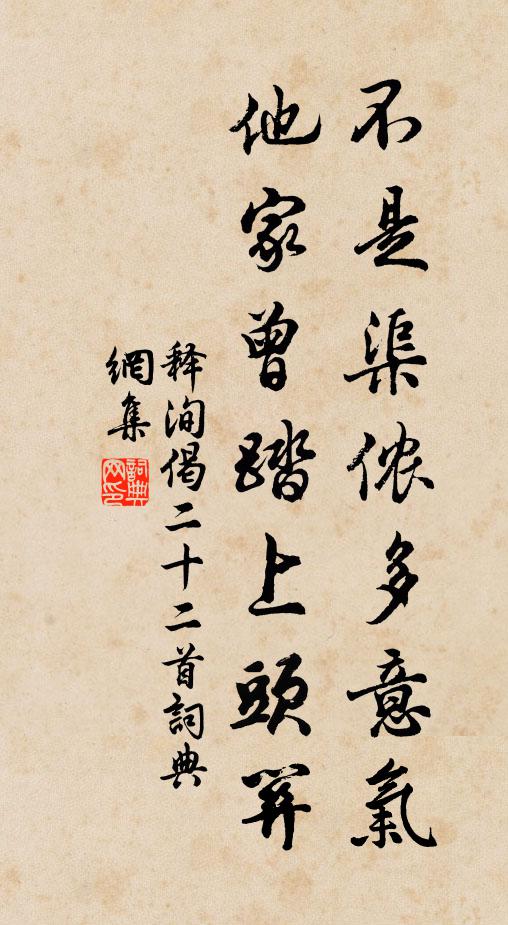 不是渠侬多意氣
他家曾踏上頭关
释洵偈二十二首詞典
網集
詞典網印